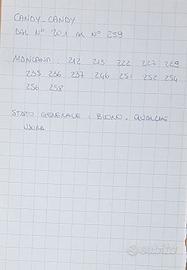 CANDY-CANDY
DAL N° 201 AL N° 259
MANCANO: 212 213 222 227 229
235 236 237 246 251 252 254
256 258
STATO GENERALE: BUONO, QUALCHE
USURA
subito